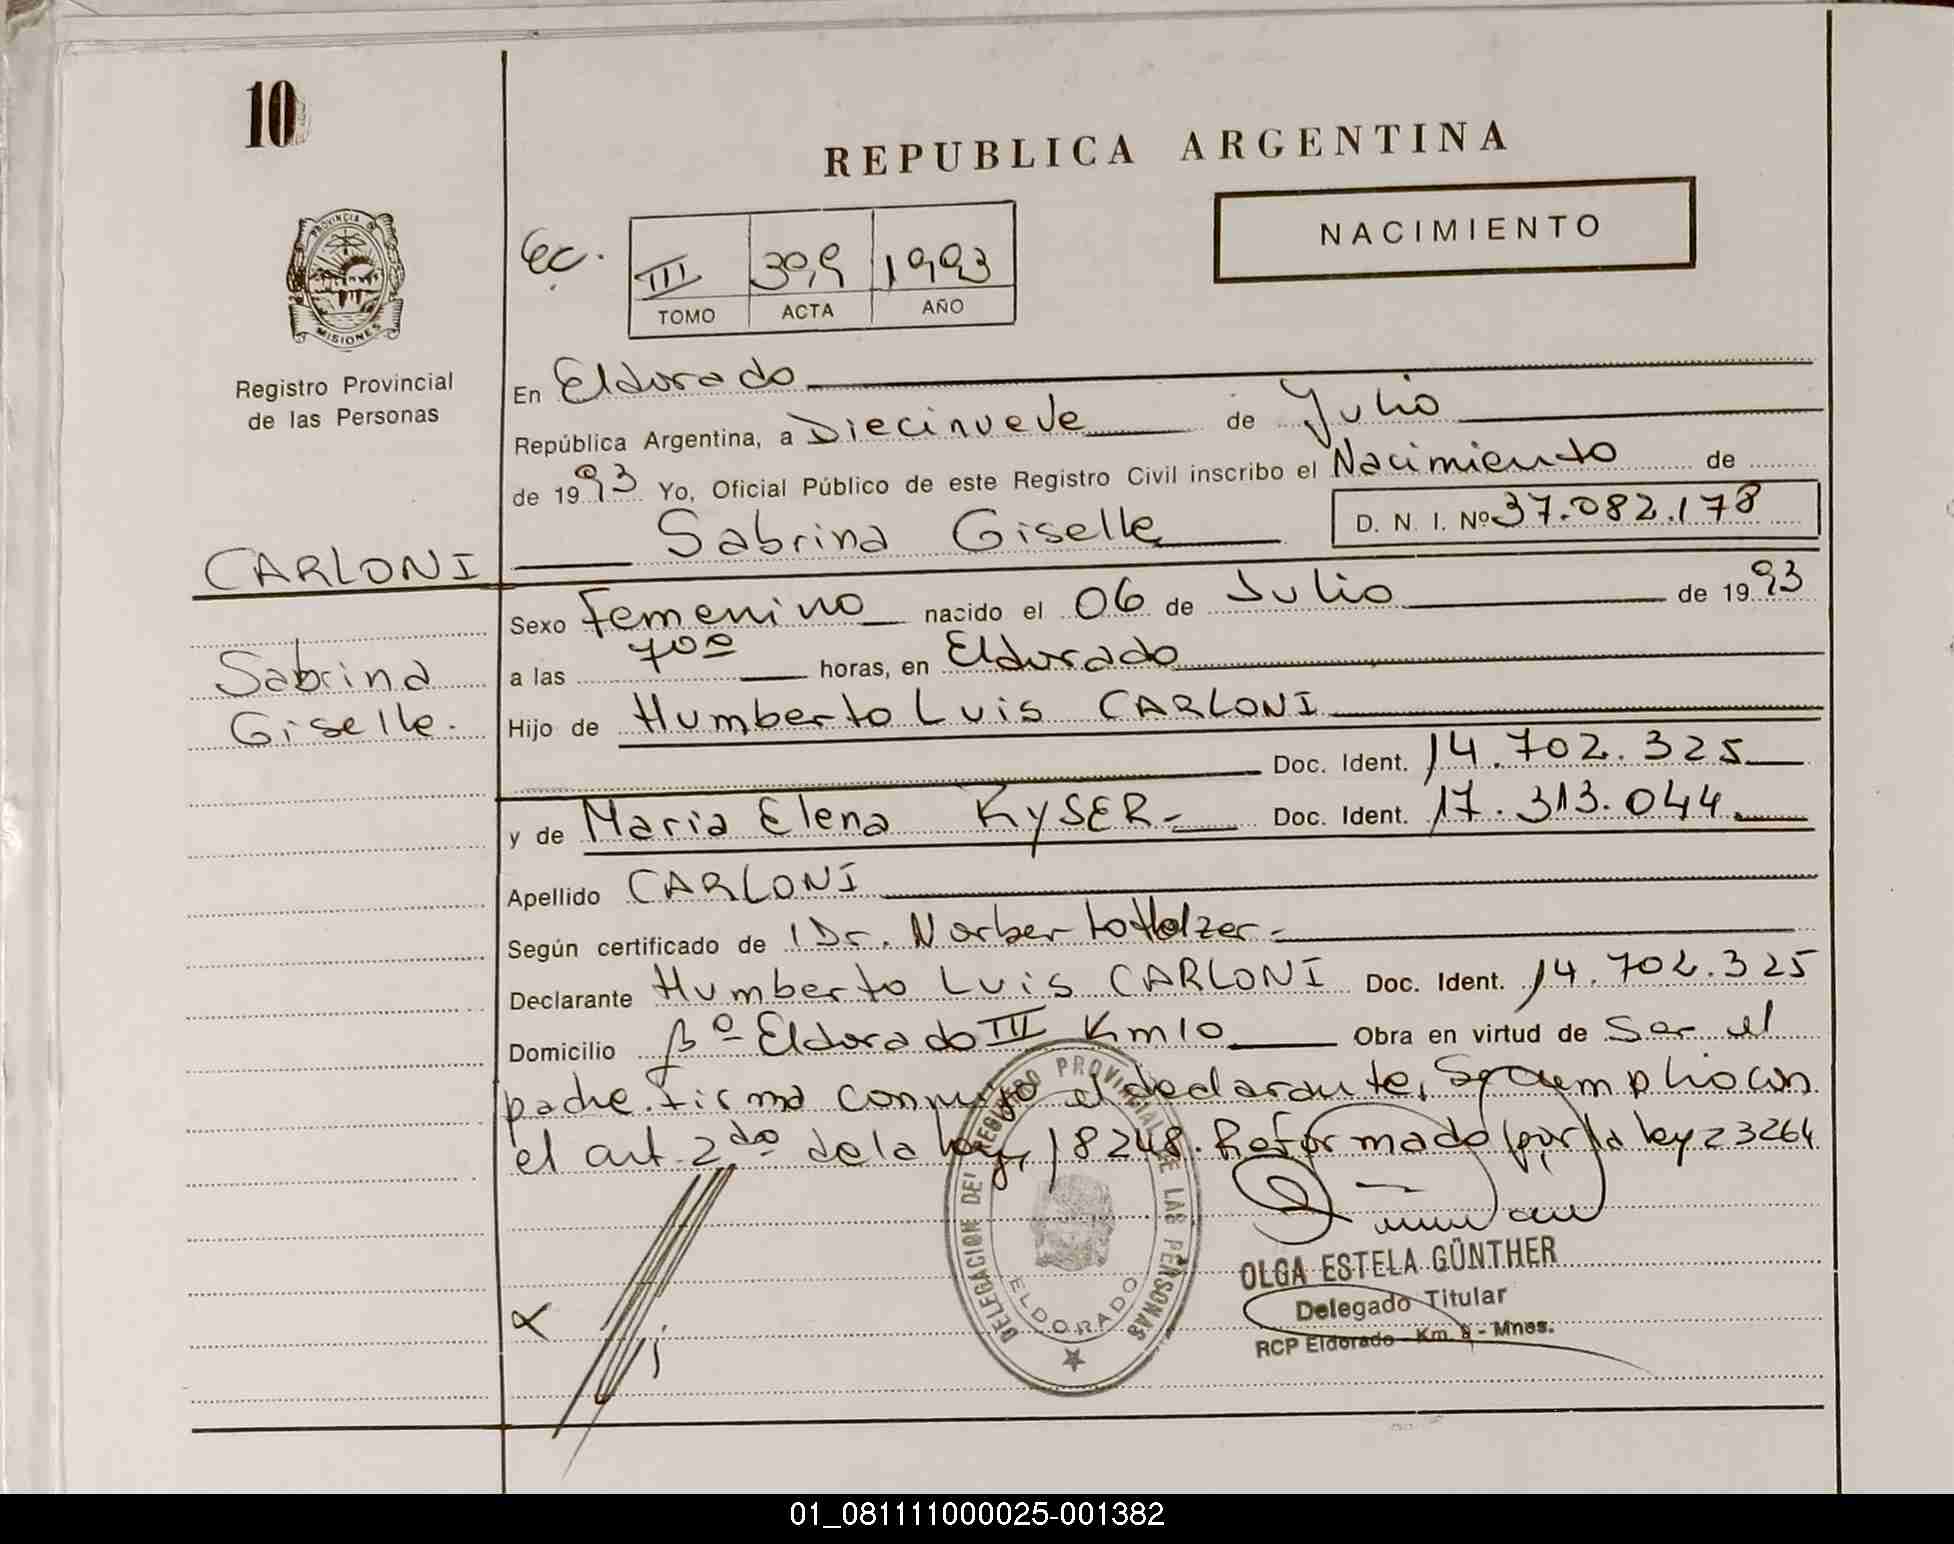 10
REPUBLICA ARGENTINA
NACIMIENTO
PROVINCIA DE
MISIONES
Registro Provincial
de las Personas
Ec.
III 399 1993
TOMO ACTA AÑO
En Eldorado
República Argentina, a Diecinueve de Julio
de 1993 Yo, Oficial Público de este Registro Civil inscribo el Nacimiento de
Sabrina Giselle D. N. I. Nº 37.082.178
CARLONI
Sabrina
Giselle.
Sexo Femenino nacido el 06 de Julio de 1993
a las 7oo horas, en Eldorado
Hijo de Humberto Luis CARLONI
Doc. Ident. 14.702.325
y de Maria Elena KySER- Doc. Ident. 17.313.044
Apellido CARLONI
Según certificado de Dr. Norberto Holzer-
Declarante Humberto Luis CARLONI Doc. Ident. 14.702.325
Domicilio Bº Eldorado III Km 10 Obra en virtud de Ser el
padre. Firma conmigo el declarante, Se cumplio con
el art 2do de la ley 18248. Reformado por la ley 23264
DELEGACION DEL REGISTRO PROVINCIAL DE LAS PERSONAS
ELDORADO
OLGA ESTELA GÜNTHER
Delegado Titular
RCP Eldorado - Km. 9 - Mnes.
01_081111000025-001382